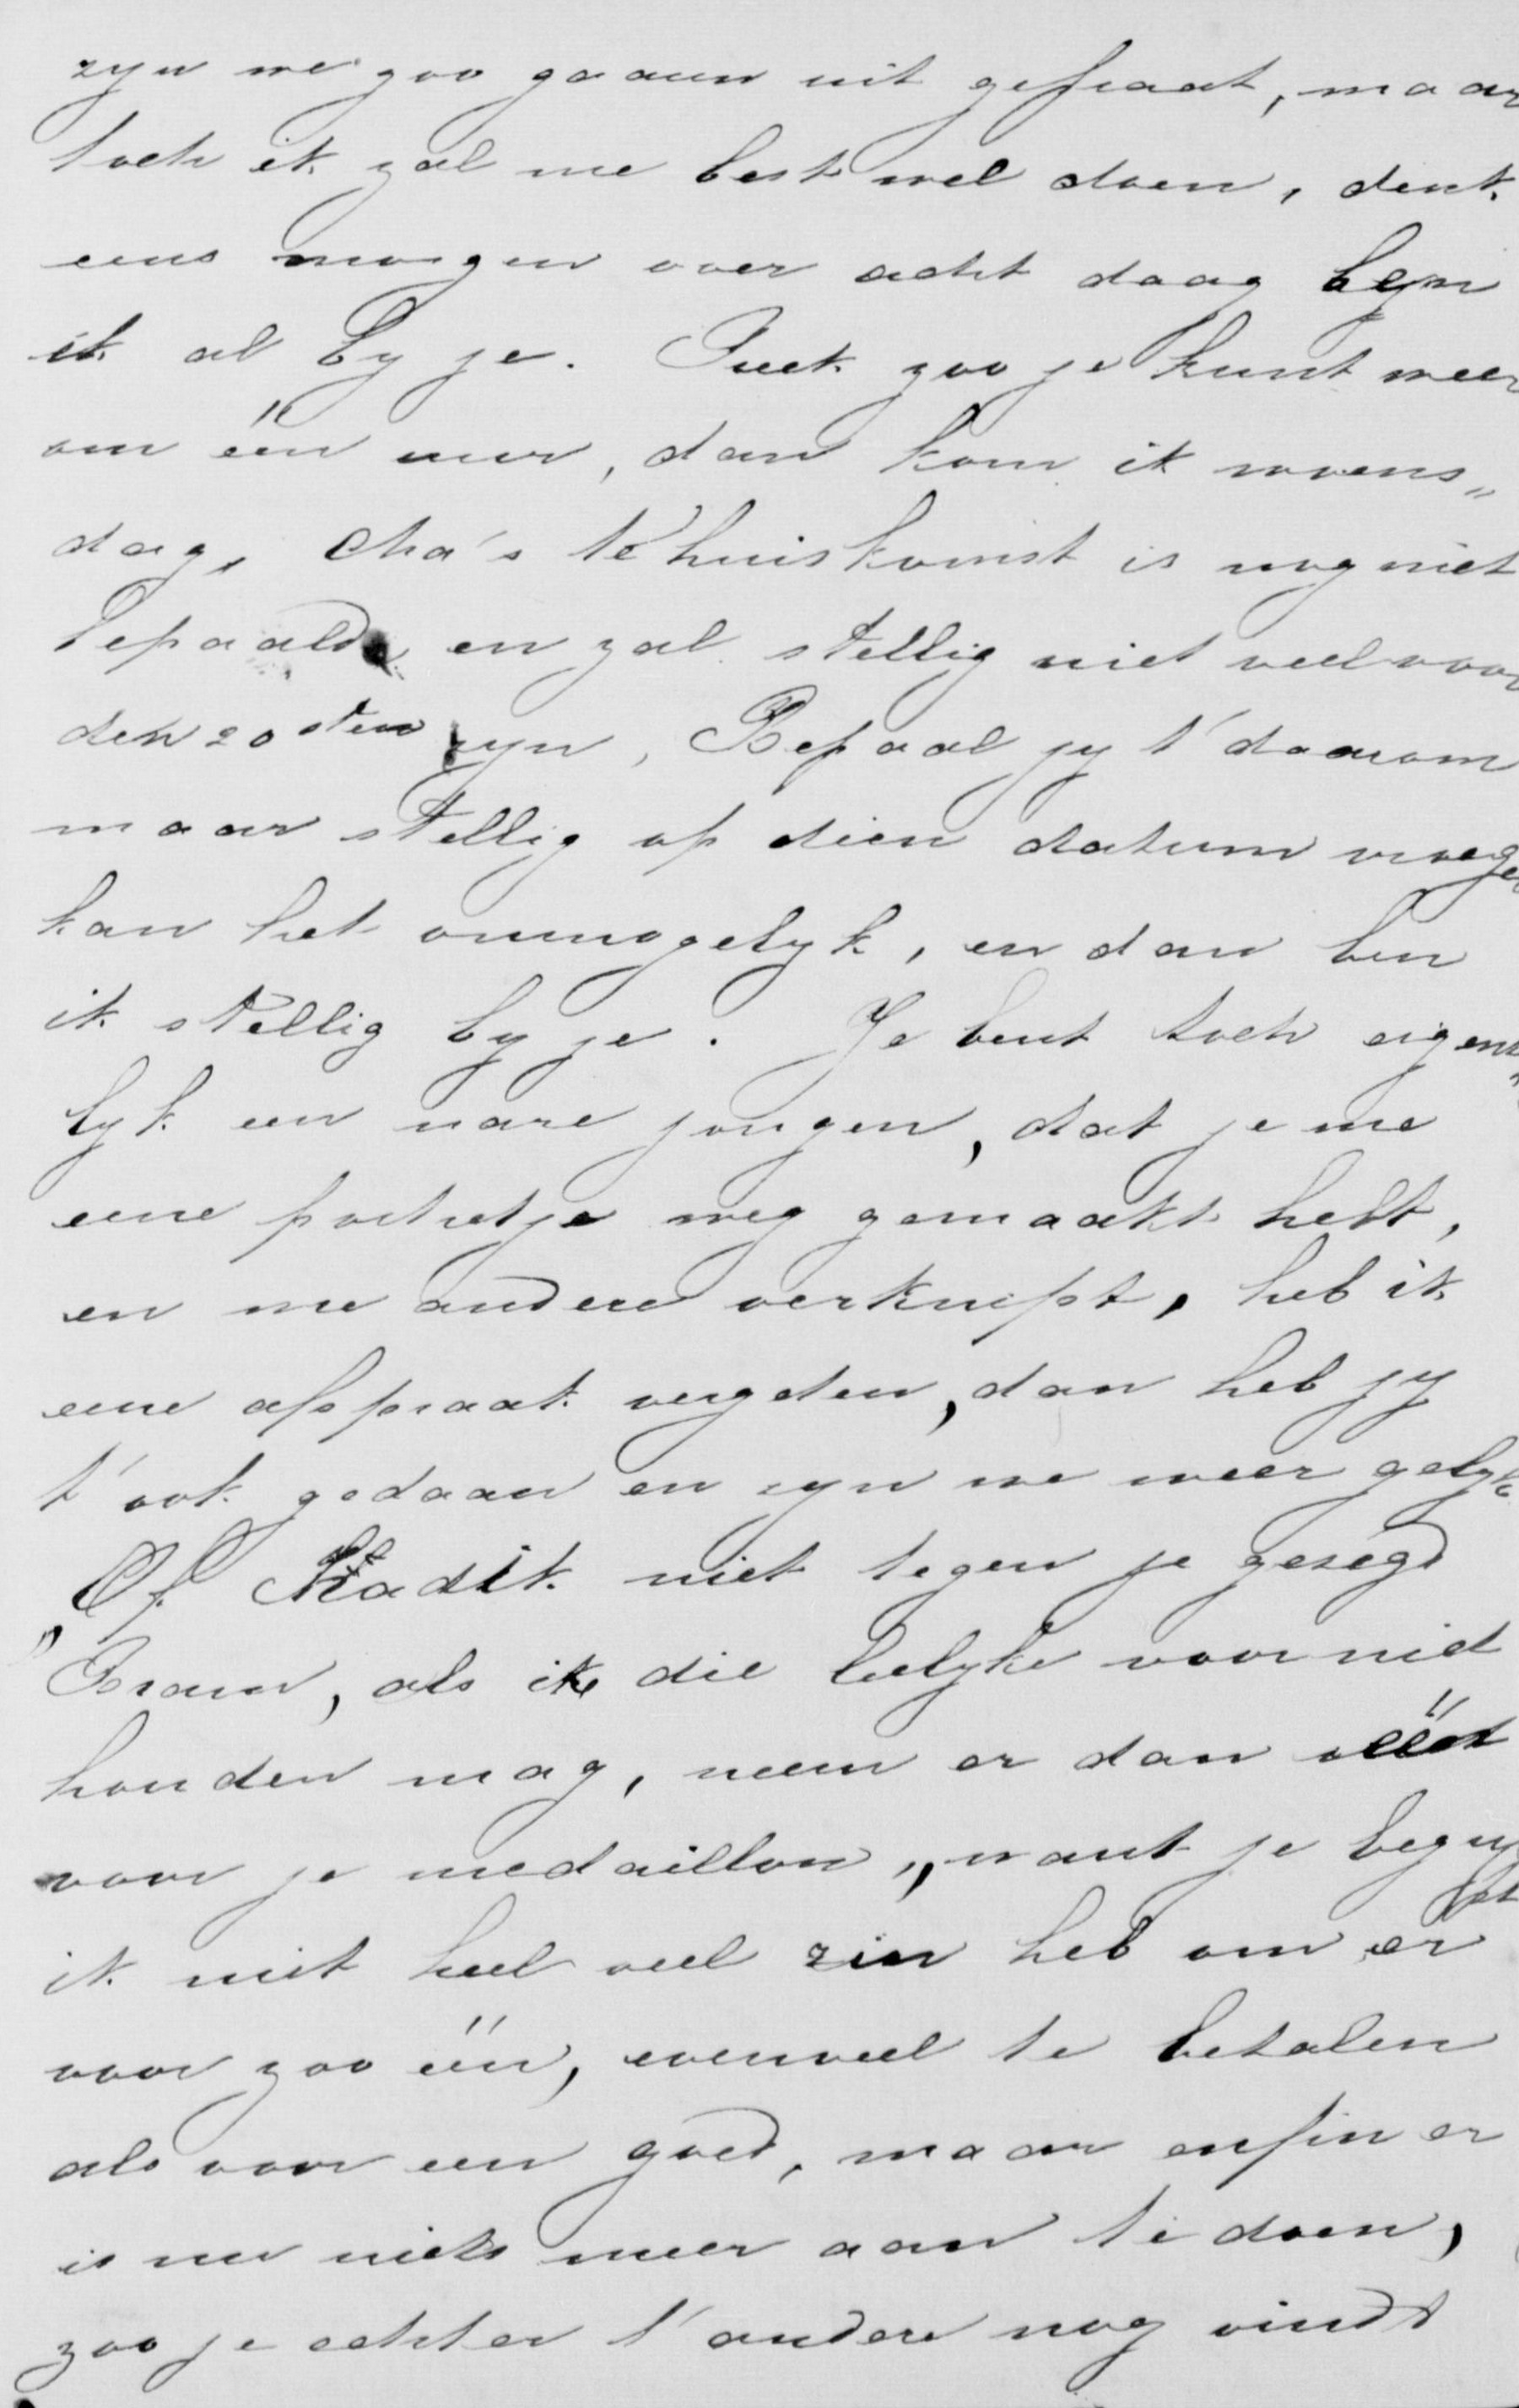 zyn we zoo gaauw uit gepraat, maar
toch ik zal me best wel doen, denk
eens morgen over acht daag ben
ik al by je. Puck zoo je kunt weer
om één uur, dan kom ik woens„
dag, Cha's te'huiskomst is nog niet
bepaald en zal stellig niet veel voor
den 20sten zyn, Bepaal jy t'daarom
maar stellig op dien datum vroeger
kan het onmogelyk, en dan ben
ik stellig by je. Je bent toch eigen„
lyk een nare jongen, dat je me
eene portretje weg gemaakt hebt,
en me andere verknipt, heb ik
eene afspraak vergeten, dan heb jy
t'ook gedaan en zyn we weer gelyk
„Of Had ik niet tegen je gezegd
Bram, als ik die leelyke voor niet
houden mag, neem er dan één
voor je medaillon„ want je begrypt
ik niet heel veel zin heb om er
voor zoo één, evenveel te betalen
als voor een goed, maar enfin er
is nu niets meer aan te doen,
zoo je echter t'andere nog vindt